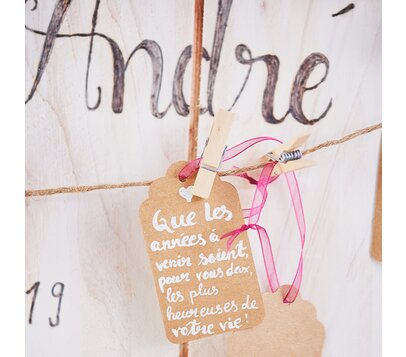 André
Que les
années à
venir soient,
pour vous deux,
les plus
heureuses de
votre vie !
19